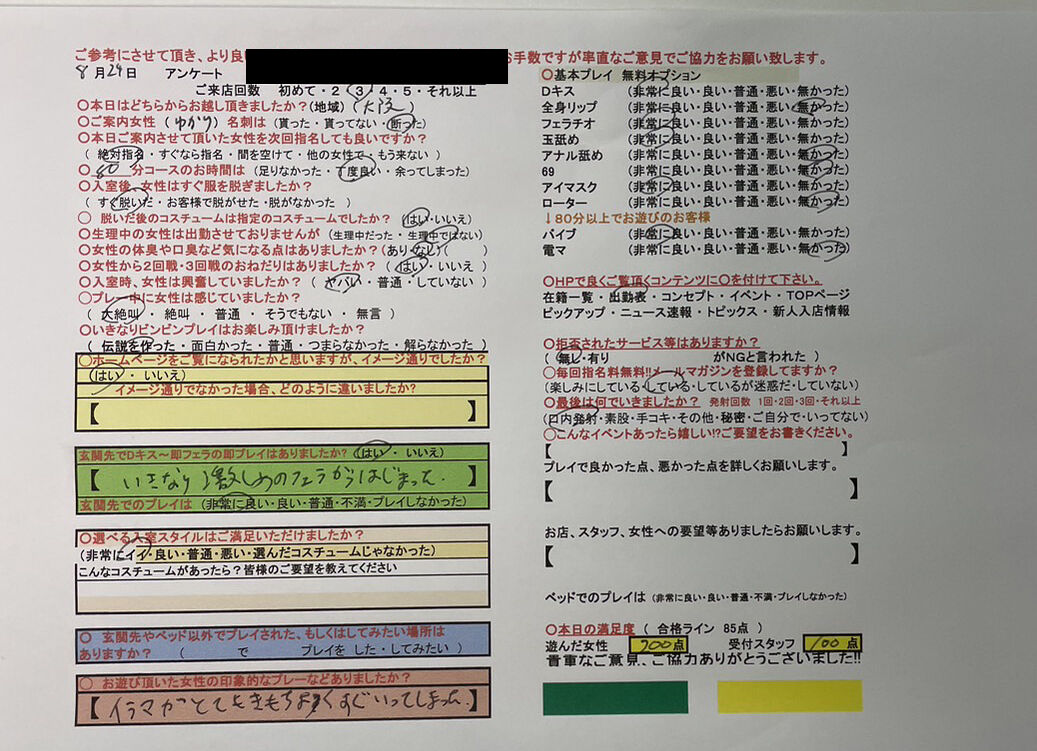 ご参考にさせて頂き、より良い
お手数ですが率直なご意見でご協力をお願い致します。
8月29日 アンケート
ご来店回数 初めて・2・3・4・5・それ以上
〇本日はどちらからお越し頂きましたか?(地域)(大阪)
〇ご案内女性(ゆかり)名刺は(貰った・貰ってない・断った)
〇本日ご案内させて頂いた女性を次回指名しても良いですか?
(絶対指名・すぐなら指名・間を空けて・他の女性で・もう来ない)
〇80分コースのお時間は(足りなかった・丁度良い・余ってしまった)
〇入室後、女性はすぐ服を脱ぎましたか?
(すぐ脱いだ・お客様で脱がせた・脱がなかった)
〇脱いだ後のコスチュームは指定のコスチュームでしたか?(はい・いいえ)
〇生理中の女性は出勤させておりませんが(生理中だった・生理中ではない)
〇女性の体臭や口臭など気になる点はありましたか?(あり・なし)( )
〇女性から2回戦・3回戦のおねだりはありましたか?(はい・いいえ)
〇入室時、女性は興奮していましたか?(ヤバい・普通・していない)
〇プレー中に女性は感じていましたか?
(大絶叫・絶叫・普通・そうでもない・無言)
〇いきなりビンビンプレイはお楽しみ頂けましたか?
(伝説を作った・面白かった・普通・つまらなかった・解らなかった)
〇ホームページをご覧になられたかと思いますが、イメージ通りでしたか?
(はい・いいえ)
イメージ通りでなかった場合、どのように違いましたか?
【 】
玄関先でDキス〜即フェラの即プレイはありましたか?(はい・いいえ)
【いきなり激しめのフェラがはじまった.】
玄関先でのプレイは(非常に良い・良い・普通・不満・プレイしなかった)
〇選べる入室スタイルはご満足いただけましたか?
(非常にイイ・良い・普通・悪い・選んだコスチュームじゃなかった)
こんなコスチュームがあったら?皆様のご要望を教えてください
〇玄関先やベッド以外でプレイされた、もしくはしてみたい場所は
ありますか?( で プレイを した・してみたい)
〇お遊び頂いた女性の印象的なプレーなどありましたか?
【イラマがとてもきもちよくすぐいってしまった.】
〇基本プレイ 無料オプション
Dキス (非常に良い・良い・普通・悪い・無かった)
全身リップ (非常に良い・良い・普通・悪い・無かった)
フェラチオ (非常に良い・良い・普通・悪い・無かった)
玉舐め (非常に良い・良い・普通・悪い・無かった)
アナル舐め (非常に良い・良い・普通・悪い・無かった)
69 (非常に良い・良い・普通・悪い・無かった)
アイマスク (非常に良い・良い・普通・悪い・無かった)
ローター (非常に良い・良い・普通・悪い・無かった)
↓80分以上でお遊びのお客様
バイブ (非常に良い・良い・普通・悪い・無かった)
電マ (非常に良い・良い・普通・悪い・無かった)
〇HPで良くご覧頂くコンテンツに〇を付けて下さい。
在籍一覧・出勤表・コンセプト・イベント・TOPページ
ピックアップ・ニュース速報・トピックス・新人入店情報
〇拒否されたサービス等はありますか?
(無し・有り がNGと言われた)
〇毎回指名料無料!!メールマガジンを登録してますか?
(楽しみにしている・している・しているが迷惑だ・していない)
〇最後は何でいきましたか? 発射回数 1回・2回・3回・それ以上
(口内発射・素股・手コキ・その他・秘密・ご自分で・いってない)
〇こんなイベントあったら嬉しい!?ご要望をお書きください。
【 】
プレイで良かった点、悪かった点を詳しくお願いします。
【 】
お店、スタッフ、女性への要望等ありましたらお願いします。
【 】
ベッドでのプレイは(非常に良い・良い・普通・不満・プレイしなかった)
〇本日の満足度(合格ライン 85点)
遊んだ女性 700点 受付スタッフ 100点
貴重なご意見、ご協力ありがとうございました!!